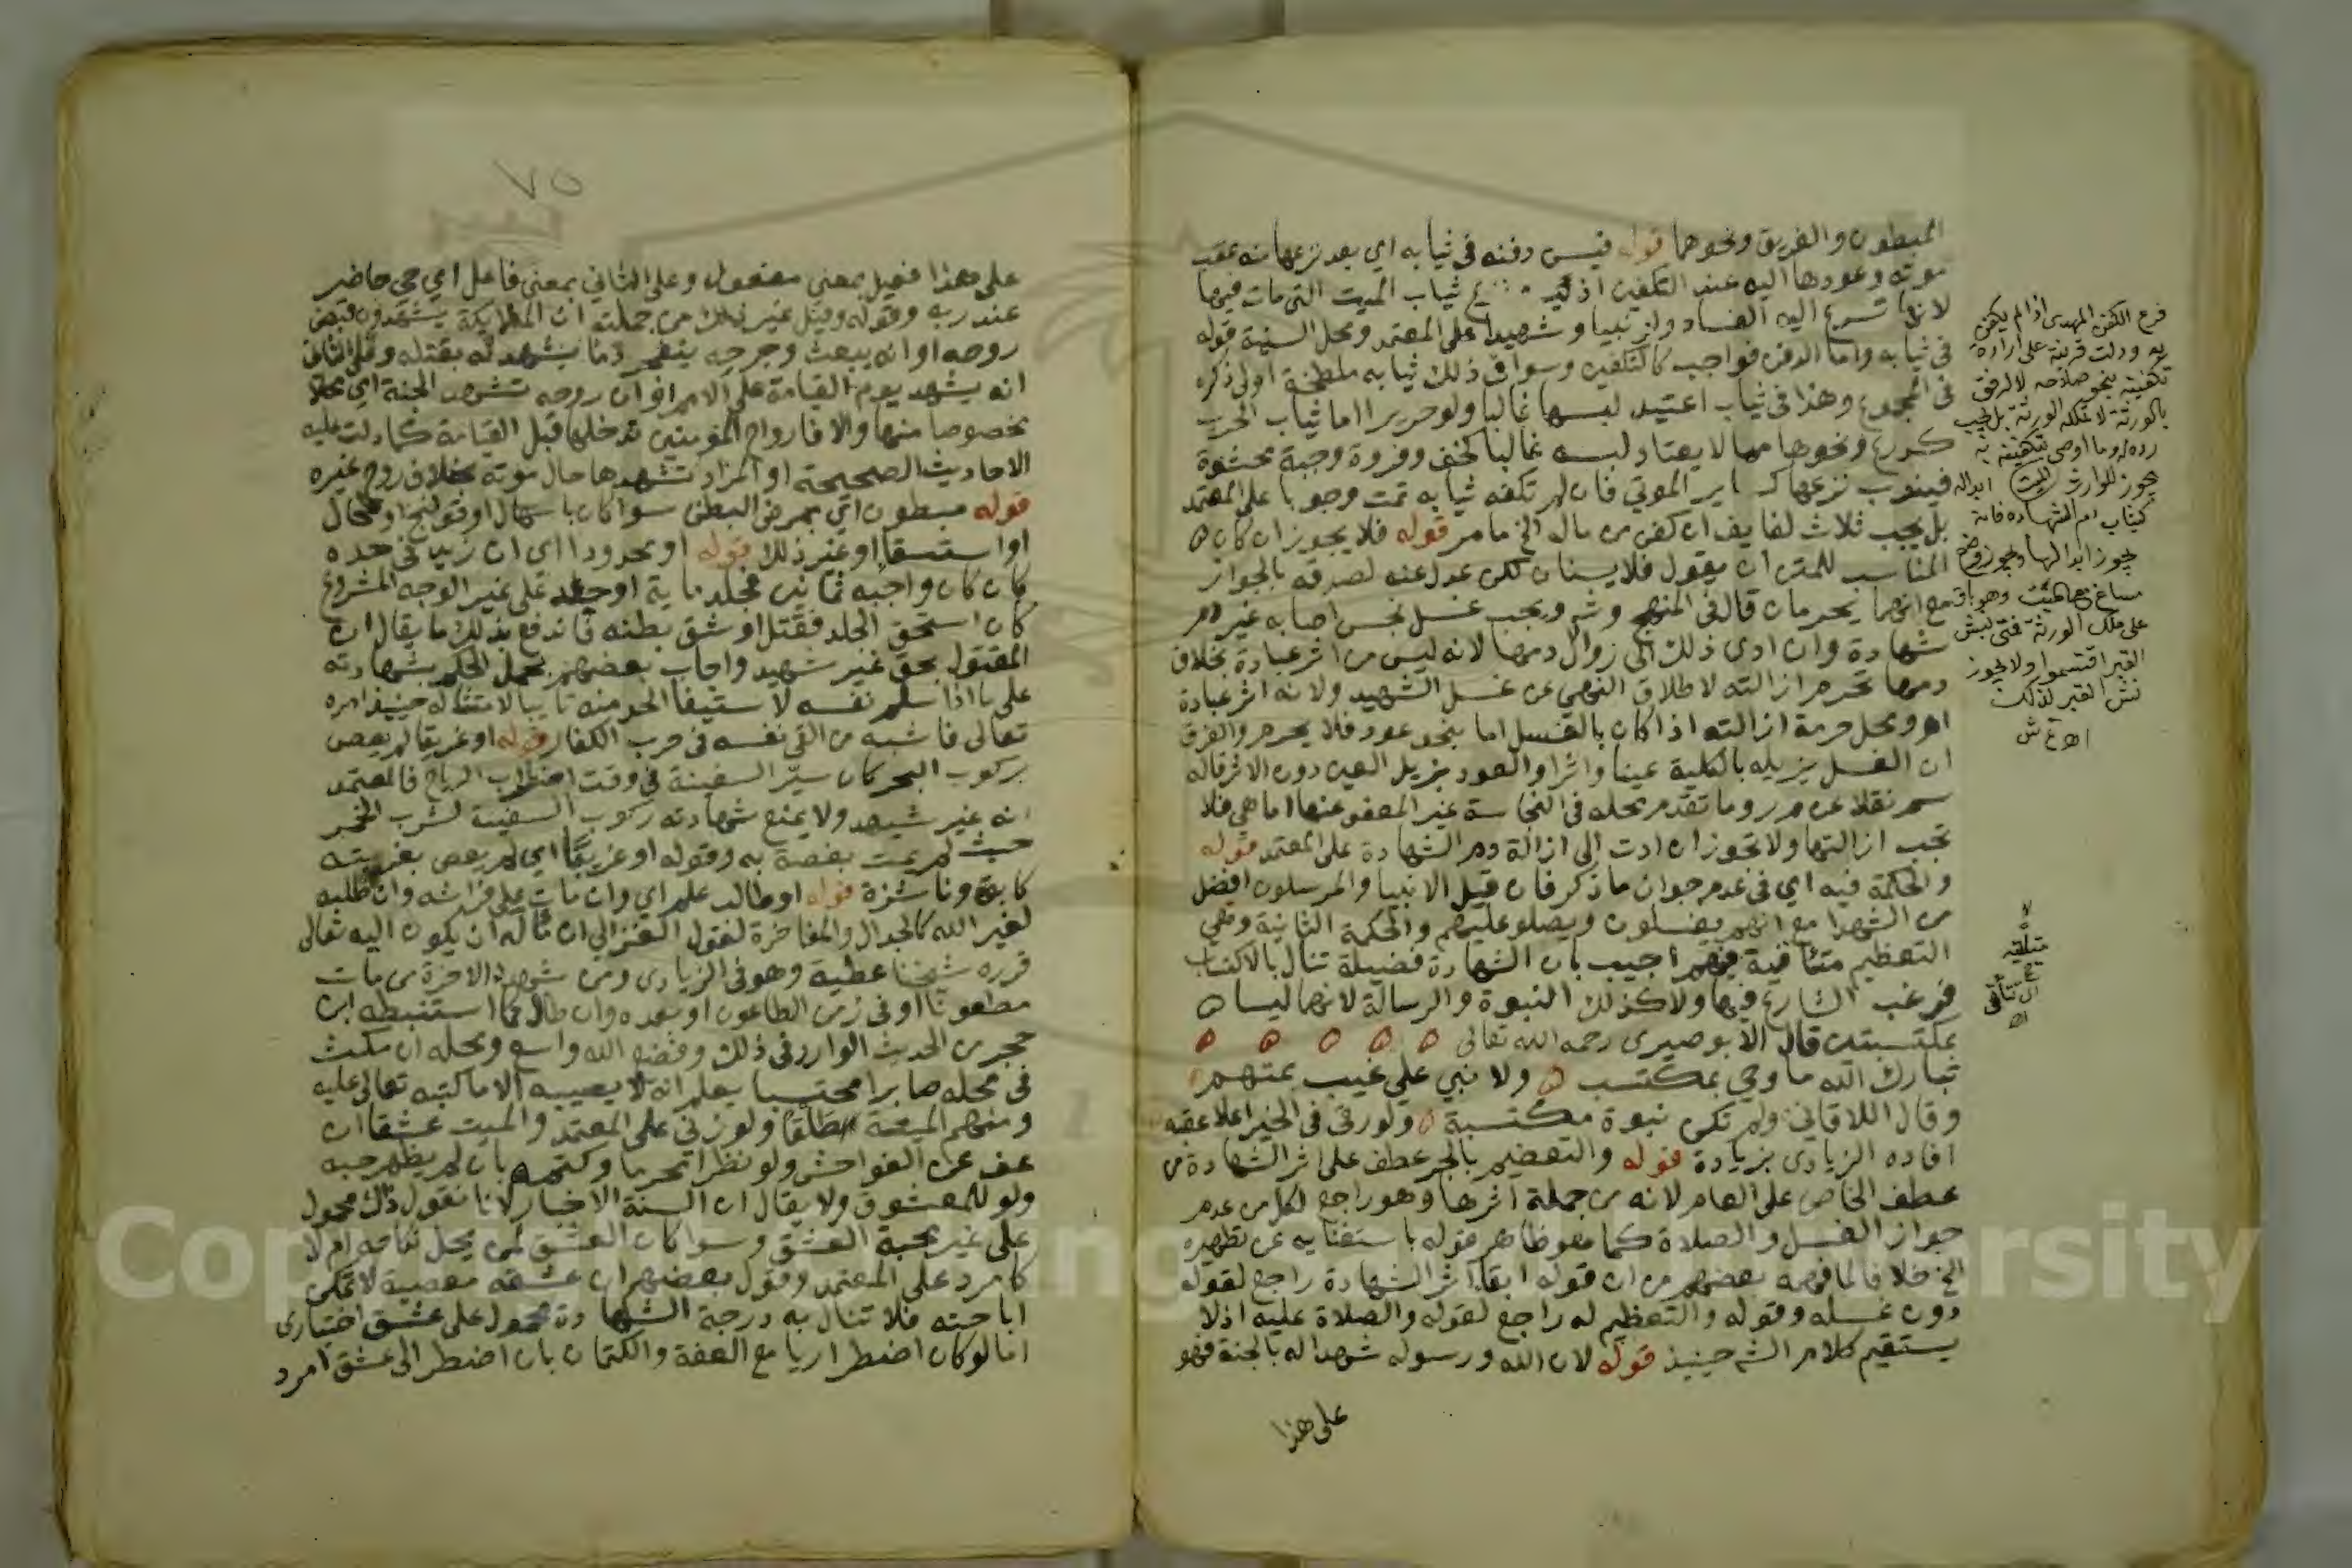 المبطون والغريق ونحوهما قوله فيسن دفنه في ثيابه اي بعد نزعها منه عقب
موته وعودها اليه عند التكفين اذ ثياب الميت التي مات فيها
لانها تسرع اليه الفساد ولو نبيا وشهيدا على المعتمد ومحل السنية قوله
في ثيابه واما الدفن فواجب كالتكفين وسوا في ذلك ثيابه ملطخة اولى ذكره
في المجموع وهذا في ثياب اعتيد لبسها غالبا ولو حريرا اما ثياب الحرب
كدرع ونحوها مما لا يعتاد لبسه غالبا كخف وفروة وجبة محشوة
فيندب نزعها كساير الموتي فان لم تكفه ثيابه تمت وجوبا على المعتمد
بل يجب ثلاث لفايف ان كفن من ماله الخ ما مر قوله فلا يجوز ان كان
المناسب للمتن ان يقول فلا يسنان لكن عدل عنه لصدقه بالجواز
مع انهما يحرمان قال في المنهج وشه ويجب غسل نجس اصابه غير دم
شهادة وان ادى ذلك الى زوال دمها لانه ليس من اثر عبادة بخلاف
دمها تحرم ازالته لاطلاق النهي عن غسل الشهيد ولانه اثر عبادة
اهـ ومحل حرمة ازالته اذا كان بالغسل اما بنحو عود فلا يحرم والفرق
ان الغسل يزيله بالكلية عينا واثرا والعود يزيل العين دون الاثر قاله
سم نقلا عن م ر وما تقدم محله في النجاسة غير المعفو عنها اما هي فلا
تجب ازالتها ولا تجوز ان ادت الى ازالة دم الشهادة على المعتمد قوله
والحكمة فيه اي في عدم جواز ما ذكر فان قيل الانبيا والمرسلون افضل
من الشهدا مع انهم يغسلون ويصلو عليهم والحكمة الثانية وهي
التعظيم متنافية فيهم اجيب بان الشهادة فضيلة تنال بالاكتساب
فرغب الشارع فيها ولا كذلك النبوة والرسالة لانهما ليسا
بمكتسبتين قال الابوصيري رحمه الله تعالى
تبارك الله ما وحي بمكتسب ولا نبي على غيب بمتهم
وقال اللاقاني ولم تكن نبوة مكتسبة ولو رقى في الخير اعلا عقبه
افاده الزيادى بزيادة قوله والتعظيم بالجر عطف على اثر الشهادة من
عطف الخاص على العام لانه من جملة اثرها وهو راجع لكل من عدم
جواز الغسل والصلاة كما هو ظاهر قوله باستغنايه عن تطهيره
الخ خلافا لما فهمه بعضهم من ان قوله ابقا اثر الشهادة راجع لقوله
دون غسله وقوله والتعظيم له راجع لقوله والصلاة عليه اذ لا
يستقيم كلام الشه حينيذ قوله لان الله ورسوله شهدا له بالجنة فهو
على هذا
فرع الكفن المهدى اذا لم يكفن
به ودلت قرينة على ارادة
تكفينه بنحو صلاحه لا لرفق
بالورثة لا تملكه الورثة بل يجب
رده له وما اوصى بتكفينه به
يجوز للوارث ابداله
كثياب دم الشهاده فانه
يجوز ابدالها
على ملك الورثة فمتى نبش
القبر اقتسموا ولا يجوز
نبش القبر لذلك
اهـ ع ش
٧٥
على هذا فعيل بمعنى مفعول وعلى الثاني بمعنى فاعل اي حي حاضر
عند ربه وقوله وقيل غير ذلك من جملته ان الملايكة يشهدون قبض
روحه او انه يبعث وجرحه ينفجر دما يشهد له بقتله وقيل الثانى
انه يشهد يوم القيامة على الامم او ان روحه تشهد الجنة اي محلا
مخصوصا منها والا فارواح المؤمنين تدخلها قبل القيامة كما دلت عليه
الاحاديث الصحيحة او المراد تشهدها حال موته بخلاف روح غيره
قوله مبطون اي بمرض البطن سوا كان باسهال او قولنج او طحال
او استسقا او غير ذلك قوله او محدودا اى ان زيد في حده
كان كان واجبه ثمانين فجلد ماية او حد على غير الوجه المشروع
كان استحق الجلد فقتل او شق بطنه فاندفع بذلك ما يقال ان
المقتول بحق غير شهيد واجاب بعضهم بحمل الحكم بشهادته
على ما اذا سلم نفسه لاستيفا الحد منه تايبا لامتثاله حينيذ امره
تعالى فاشبه من القى نفسه في حرب الكفار قوله او غريقا لم يعص
بركوب البحر كان سير السفينة في وقت اضطراب الرياح فالمعتمد
انه غير شهيد ولا يمنع شهادته ركوب السفينة لشرب الخمر
حيث لم يمت بغصة به وقوله او غريبا اي لم يعص بغربته
كابق وناشزة قوله او طالب علم اي وان مات على فراشه وان طلبه
لغير الله كالجدال والمفاخرة لقول الغزالي ان ماله ان يكون اليه تعالى
قرره شيخنا عطية وهو في الزيادى ومن شهدا الاخرة من مات
مطعونا او في زمن الطاعون او بعده وان طال كما استنبطه ابن
حجر من الحديث الوارد في ذلك وفضل الله واسع ومحله ان مكث
في محله صابرا محتسبا يعلم انه لا يصيبه الا ما كتبه تعالى عليه
ومنهم الميتة طلقا ولو زني على المعتمد والميت عشقا ان
عف عن الفواحش ولو نظرا محرما وكتمه بان لم يظهر حبه
ولو للمعشوق ولا يقال ان السنة الاخبار لانا نقول ذلك محمول
على غير محبة العشق وسوا كان العشق لمن يحل نكاحه ام لا
كامرد على المعتمد وقول بعضهم ان عشقه معصية لا تمكن
اباحته فلا تنال به درجة الشهادة محمول على عشق اختيارى
اما لو كان اضطراريا مع العفة والكتمان بان اضطر الى عشق امرد